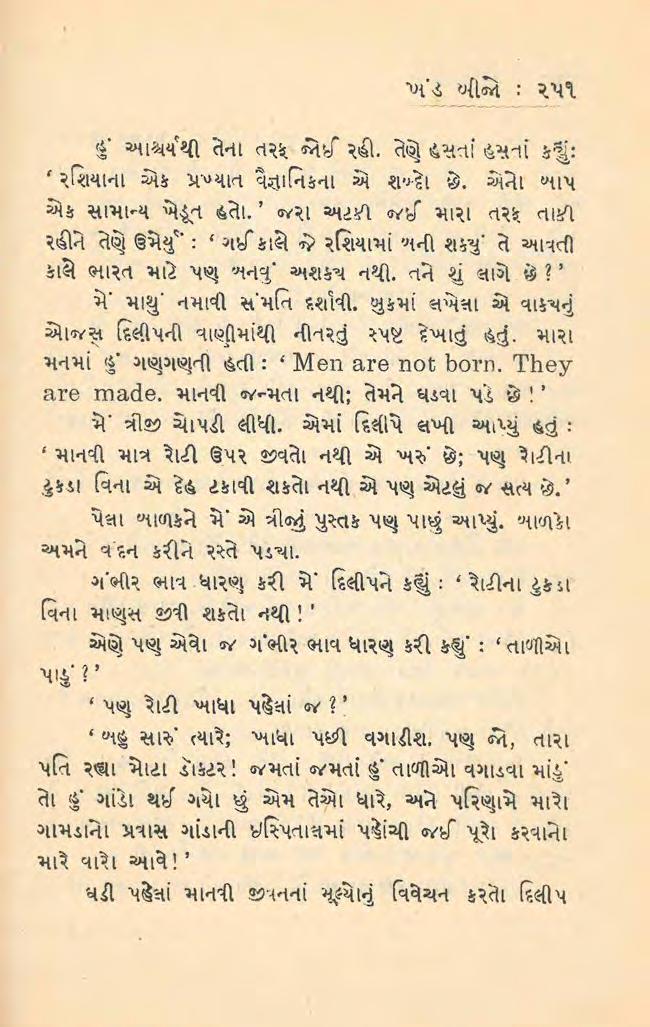 ખંડ બીજો : ૨૫૧
હું આશ્ચર્યથી તેના તરફ જોઈ રહી. તેણે હસતાં હસતાં કહ્યુંઃ
‘ રશિયાના એક પ્રખ્યાત વૈજ્ઞાનિકના એ શબ્દો છે. એનો બાપ
એક સામાન્ય ખેડૂત હતો.’ જરા અટકી જઈ મારા તરફ તાકી
રહીને તેણે ઉમેર્યું : ‘ ગઈ કાલે જે રશિયામાં બની શક્યું તે આવતી
કાલે ભારત માટે પણ બનવું અશક્ય નથી. તને શું લાગે છે ? ’
મેં માથું નમાવી સંમતિ દર્શાવી. બુકમાં લખેલા એ વાક્યનું
ઓજસ્ દિલીપની વાણીમાંથી નીતરતું સ્પષ્ટ દેખાતું હતું. મારા
મનમાં હું ગણગણતી હતી : ‘ Men are not born. They
are made. માનવી જન્મતા નથી; તેમને ઘડવા પડે છે ! ’
મેં ત્રીજી ચોપડી લીધી. એમાં દિલીપે લખી આપ્યું હતું :
‘ માનવી માત્ર રોટી ઉપર જીવતો નથી એ ખરું છે; પણ રોટીના
ટુકડા વિના એ દેહ ટકાવી શકતો નથી એ પણ એટલું જ સત્ય છે.’
પેલા બાળકને મેં એ ત્રીજું પુસ્તક પણ પાછું આપ્યું. બાળકો
અમને વંદન કરીને રસ્તે પડ્યા.
ગંભીર ભાવ ધારણ કરી મેં દિલીપને કહ્યું : ‘ રોટીના ટુકડા
વિના માણસ જીવી શકતો નથી ! ’
એણે પણ એવો જ ગંભીર ભાવ ધારણ કરી કહ્યું : ‘ તાળીઓ
પાડું ? ’
‘ પણ રોટી ખાધા પહેલાં જ ? ’
‘ બહુ સારું ત્યારે; ખાધા પછી વગાડીશ. પણ જો, તારા
પતિ રહ્યા મોટા ડૉક્ટર! જમતાં જમતાં હું તાળીઓ વગાડવા માંડું
તો હું ગાંડો થઈ ગયો છું એમ તેઓ ધારે, અને પરિણામે મારો
ગામડાનો પ્રવાસ ગાંડાની ઇસ્પિતાલમાં પહોંચી જઈ પૂરો કરવાનો
મારે વારો આવે ! ’
ઘડી પહેલાં માનવી જીવનનાં મૂલ્યોનું વિવેચન કરતો દિલીપ